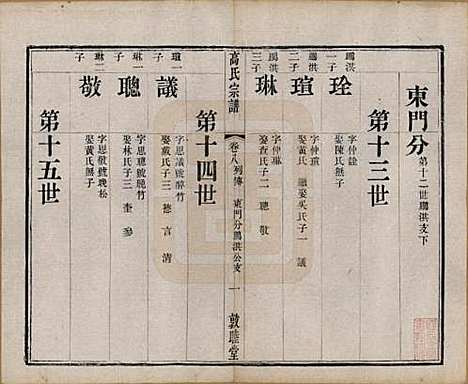 東門分
第十二世鵬洪支下
第十三世
鵬洪一子
銓
字仲銓
娶陳氏無子
鵬洪二子
瑄
字仲瑄
娶黃氏 繼娶吳氏子一 議
鵬洪三子
琳
字仲琳
娶查氏子二 聰 敬
第十四世
高氏宗譜
卷之八列傳 東門分鵬洪公支 一
敦睦堂
瑄一子
議
字思議號醉竹
娶黃氏子三 德 言 清
琳一子
聰
字思聰號晚竹
娶林氏子二 奎 參
琳二子
敬
字思敬號晚松
娶黃氏無子
第十五世